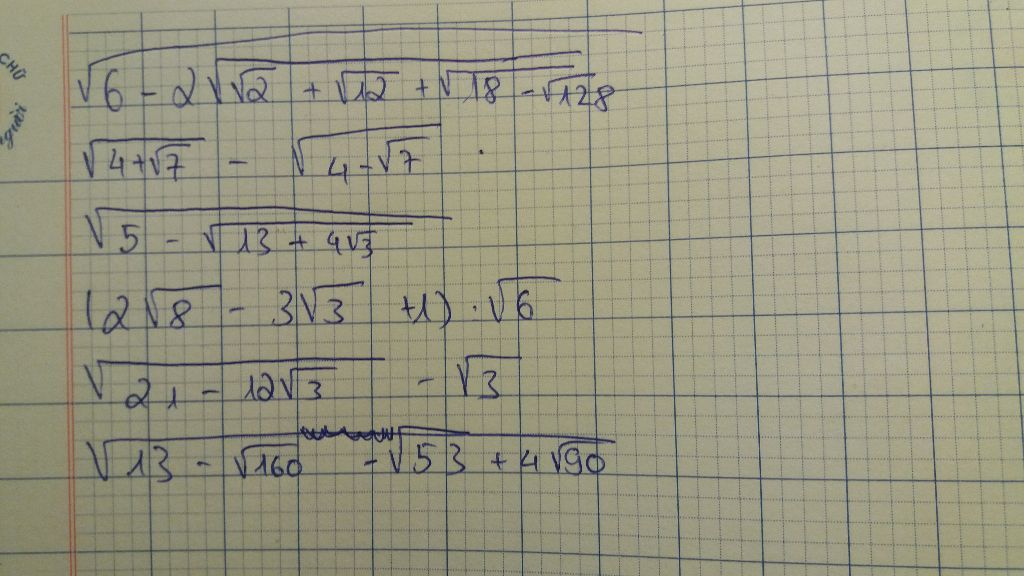 √(6 - 2√(√2 + √12 + √(18 - √128)))
√(4+√7) - √(4-√7) .
√(5 - √(13 + 4√3))
(2√8 - 3√3 +1) · √6
√(21 - 12√3) - √3
√(13 - √160 - √(53 + 4√90))